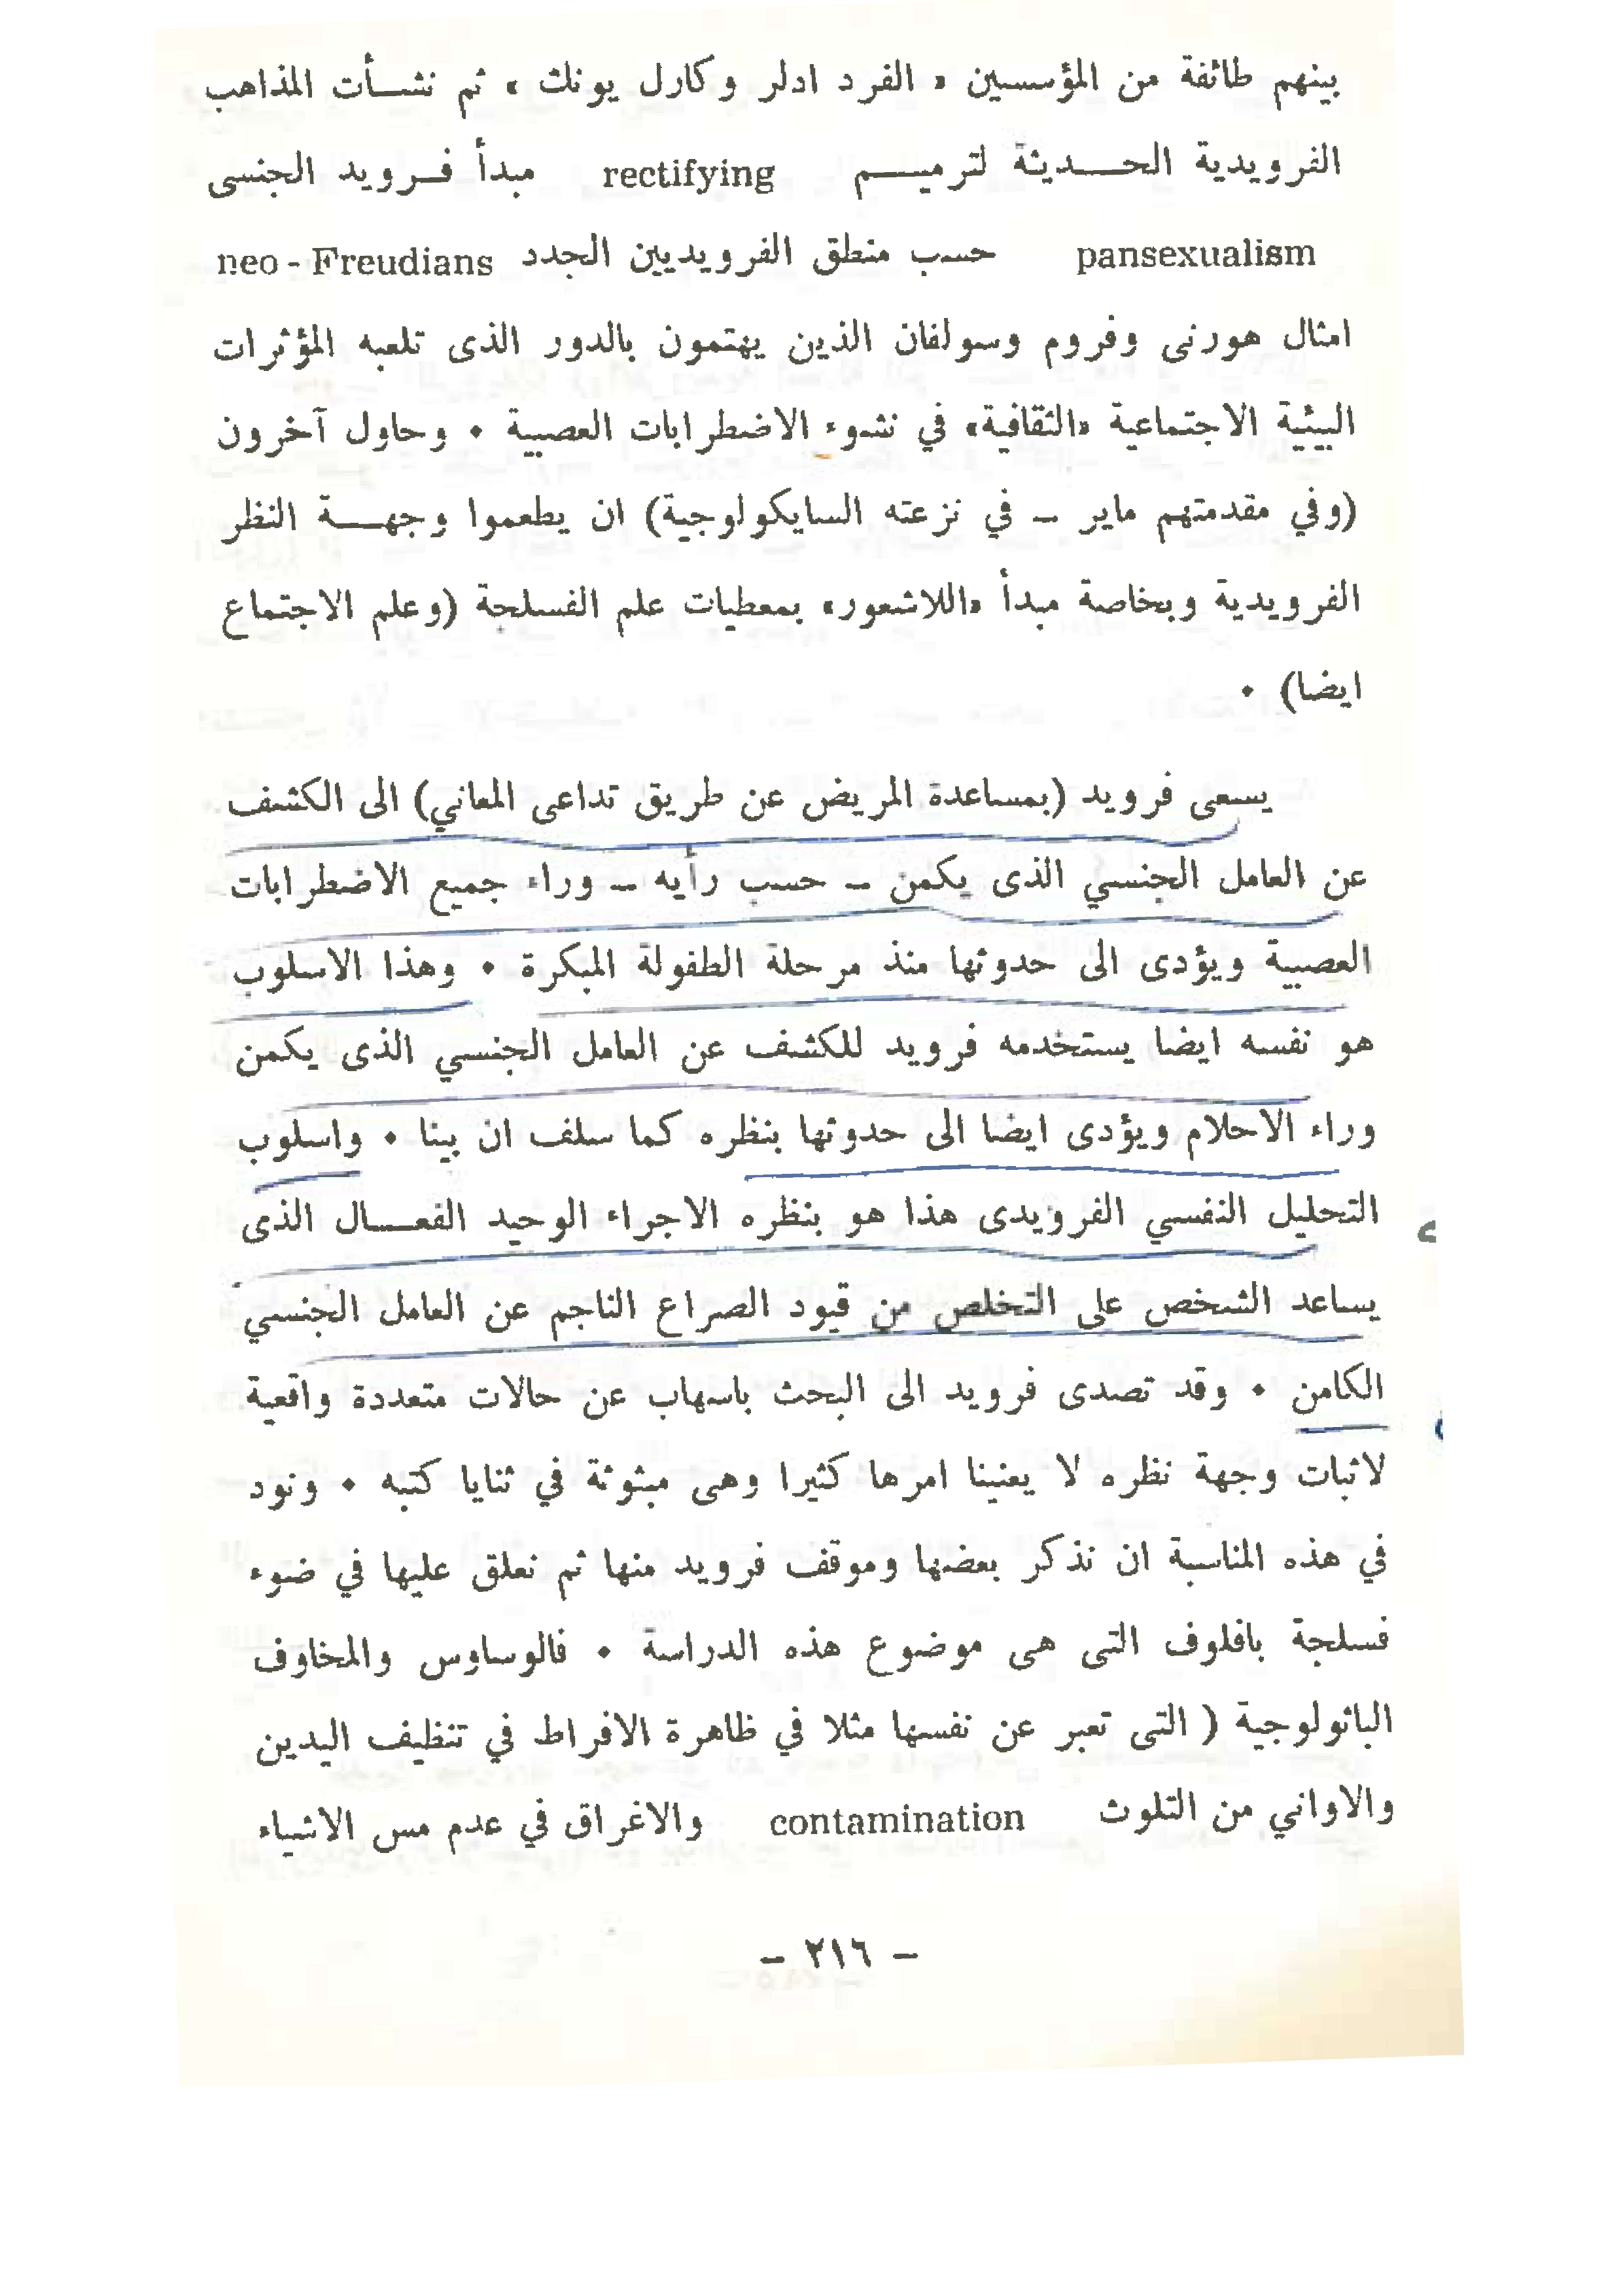 بينهم طائفة من المؤسسين « الفرد ادلر وكارل يونك » ثم نشـأت المذاهب
الفرويدية الحـديثة لترميـم rectifying مبدأ فـرويد الجنسى
pansexualism حسب منطق الفرويديين الجدد neo - Freudians
امثال هورنى وفروم وسولفان الذين يهتمون بالدور الذى تلعبه المؤثرات
البيئية الاجتماعية «الثقافية» في نشوء الاضطرابات العصبية • وحاول آخرون
(وفي مقدمتهم ماير – في نزعته السايكولوجية) ان يطعموا وجهـة النظر
الفرويدية وبخاصة مبدأ «اللاشعور» بمعطيات علم الفسلجة (وعلم الاجتماع
ايضا) •
يسعى فرويد (بمساعدة المريض عن طريق تداعى المعاني) الى الكشف
عن العامل الجنسي الذى يكمن – حسب رأيه – وراء جميع الاضطرابات
العصبية ويؤدى الى حدوثها منذ مرحلة الطفولة المبكرة • وهذا الاسلوب
هو نفسه ايضا يستخدمه فرويد للكشف عن العامل الجنسي الذى يكمن
وراء الاحلام ويؤدى ايضا الى حدوثها بنظره كما سلف ان بينا • واسلوب
التحليل النفسي الفرويدى هذا هو بنظره الاجراء الوحيد الفعـال الذى
يساعد الشخص على التخلص من قيود الصراع الناجم عن العامل الجنسي
الكامن • وقد تصدى فرويد الى البحث باسهاب عن حالات متعددة واقعية
لاثبات وجهة نظره لا يعنينا امرها كثيرا وهى مبثوثة في ثنايا كتبه • ونود
في هذه المناسبة ان نذكر بعضها وموقف فرويد منها ثم نعلق عليها في ضوء
فسلجة بافلوف التى هى موضوع هذه الدراسة • فالوساوس والمخاوف
الباثولوجية ( التى تعبر عن نفسها مثلا في ظاهرة الافراط في تنظيف اليدين
والاواني من التلوث contamination والاغراق في عدم مس الاشياء
– ٢١٦ –